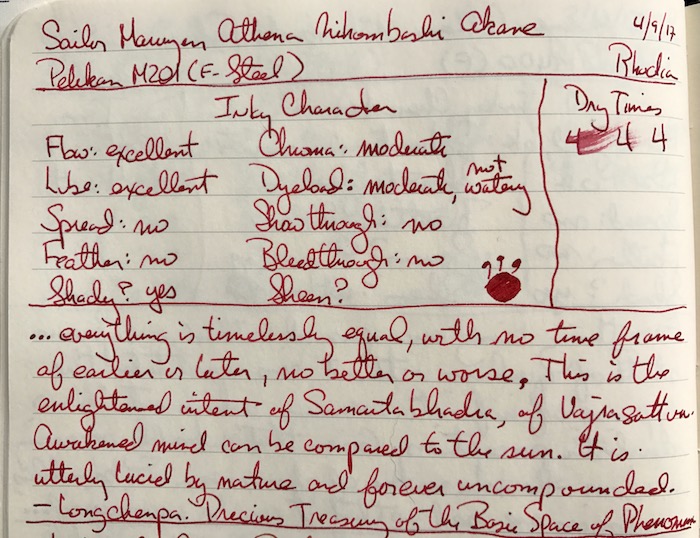 Sailor Maruzen Athena Nihombashi Akane
4/9/17
Pelikan M201 (F-Steel)
Rhodia
Inky Character
Dry Times
Flow: excellent
Chroma: moderate
4 4 4
Lube: excellent
Dyeload: moderate, not watery
Spread: no
Show through: no
Feather: no
Bleedthrough: no
Shady? yes
Sheen?
... everything is timelessly equal, with no time frame
of earlier or later, no better or worse. This is the
enlightened intent of Samantabhadra, of Vajrasattva.
Awakened mind can be compared to the sun. It is
utterly lucid by nature and forever uncompounded.
- Longchenpa. Precious Treasury of the Basic Space of Phenomena